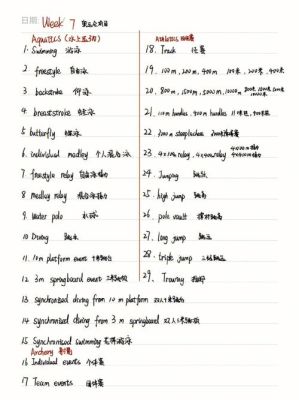 日期: Week 7 奥运会项目
Aquatics (水上运动)
1. Swimming 游泳
2. freestyle 自由泳
3. backstroke 仰泳
4. breaststroke 蛙泳
5. butterfly 蝶泳
6. individual medley 个人混合泳
7. freestyle relay 自由泳接力
8. medley relay 混合泳接力
9. Water polo 水球
10. Diving 跳水
11. 10m platform event 十米跳台
12. 3m springboard event 三米跳板
13. synchronized diving from 10 m platform 双人十米跳台
14. synchronized diving from 3 m springboard 双人三米跳板
15. Synchronized swimming 花样游泳
Archery 射箭
16. Individual events 个体赛
17. Team events 团体赛
Athletics 田径赛
18. Track 径赛
19. 100m, 200m, 400m 100米, 200米, 400米
20. 800m, 1500m, 5000m, 10000m
21. 110m hurdles, 400m hurdles 110米栏, 400米栏
22. 3000m steeplechase
23. 4x100m relay, 4x400m relay 4x100米接力 4x400米接力
24. Jumping 跳跃
25. high jump 跳高
26. pole vault 撑杆跳高
27. long jump 跳远
28. triple jump 三级跳远
29.